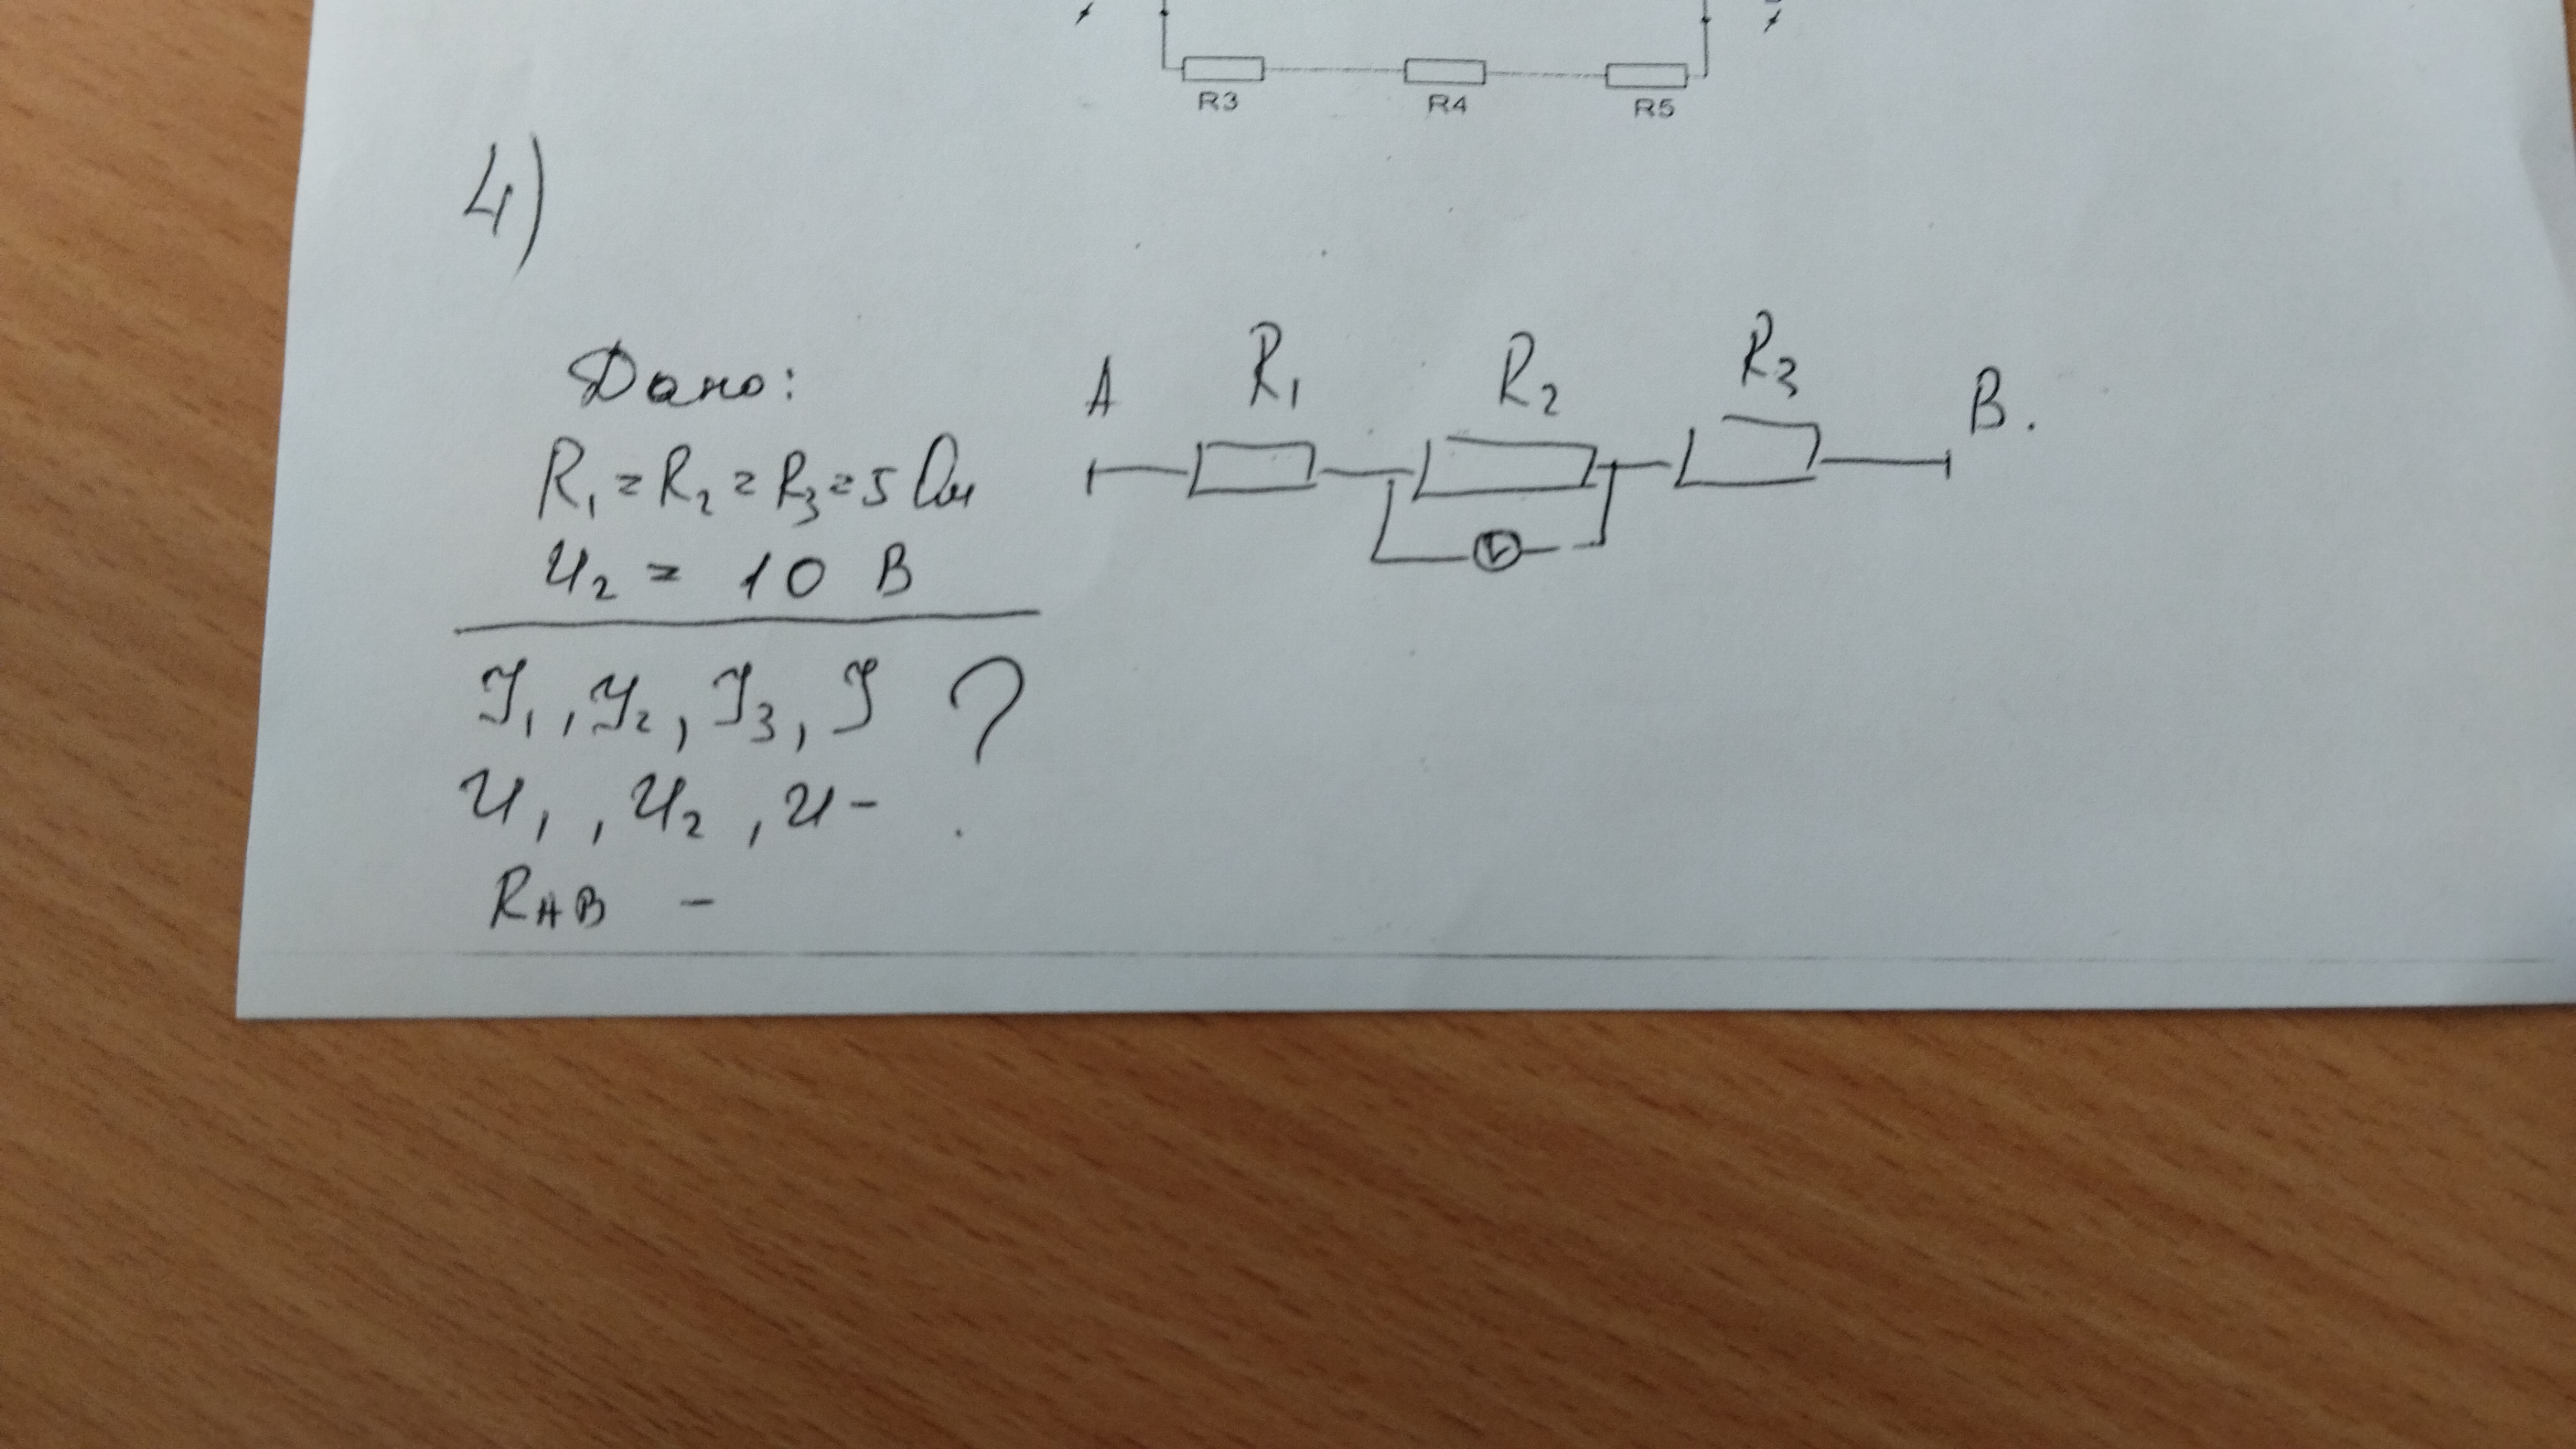 R3 R4 R5
4)
Дано:
R₁ = R₂ = R₃ = 5 Ом
U₂ = 10 В
I₁, I₂, I₃, I ?
U₁, U₂, U -
RAB -
A R₁ R₂ R₃ B.
V